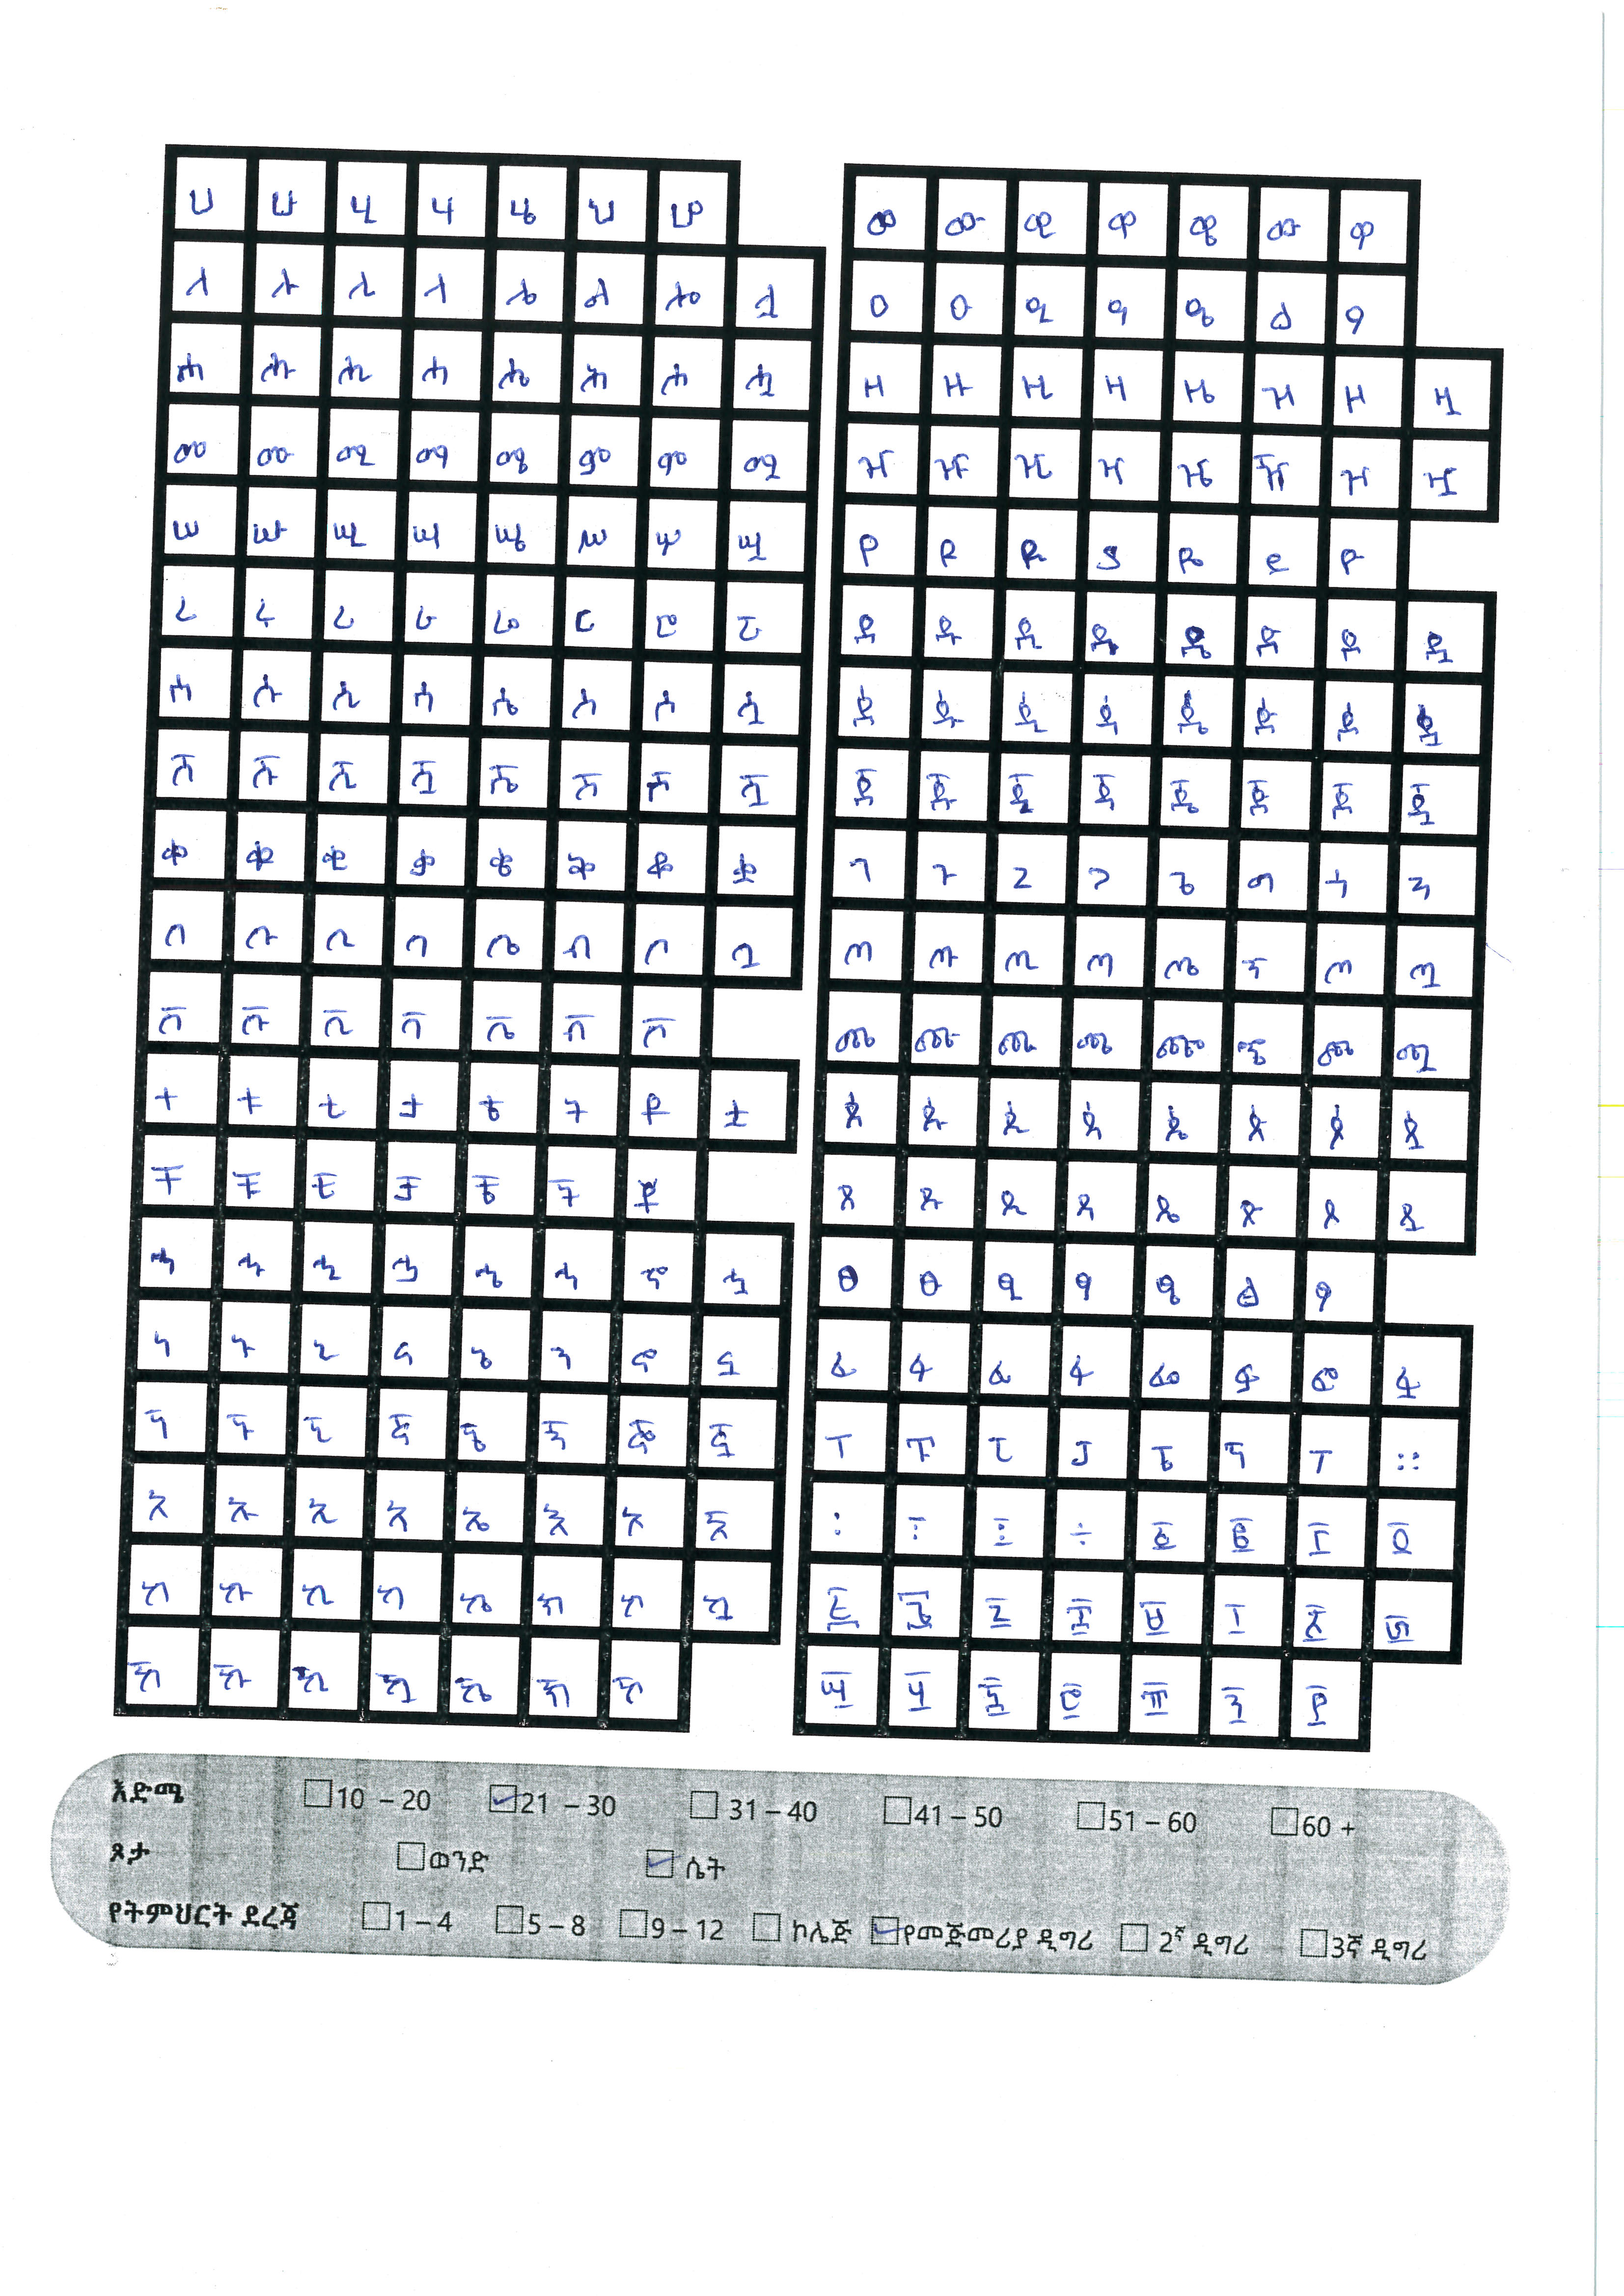 ሀ ሁ ሂ ሃ ሄ ህ ሆ
ለ ሉ ሊ ላ ሌ ል ሎ ሏ
ሐ ሑ ሒ ሓ ሔ ሕ ሖ ሗ
መ ሙ ሚ ማ ሜ ም ሞ ሟ
ሠ ሡ ሢ ሣ ሤ ሥ ሦ ሧ
ረ ሩ ሪ ራ ሬ ር ሮ ሯ
ሰ ሱ ሲ ሳ ሴ ስ ሶ ሷ
ሸ ሹ ሺ ሿ ሼ ሽ ሾ ሿ
ቀ ቁ ቂ ቃ ቄ ቅ ቆ ቋ
በ ቡ ቢ ባ ቤ ብ ቦ ቧ
ቨ ቩ ቪ ቫ ቬ ቭ ቮ
ተ ቱ ቲ ታ ቴ ት ቶ ቷ
ቸ ቹ ቺ ቻ ቼ ች ቾ
ኀ ኁ ኂ ኃ ኄ ኅ ኆ ኋ
ነ ኑ ኒ ና ኔ ን ኖ ኗ
ኘ ኙ ኚ ኛ ኜ ኝ ኞ ኟ
አ ኡ ኢ ኣ ኤ እ ኦ ኧ
ከ ኩ ኪ ካ ኬ ክ ኮ ኳ
ኸ ኹ ኺ ኻ ኼ ኽ ኾ
ወ ዉ ዊ ዋ ዌ ው ዎ
ዐ ዑ ዒ ዓ ዔ ዕ ዖ
ዘ ዙ ዚ ዛ ዜ ዝ ዞ ዟ
ዠ ዡ ዢ ዣ ዤ ዥ ዦ ዧ
የ ዩ ዪ ያ ዬ ይ ዮ
ደ ዱ ዲ ዳ ዴ ድ ዶ ዷ
ዸ ዹ ዺ ዻ ዼ ዽ ዾ ዿ
ጀ ጁ ጂ ጃ ጄ ጅ ጆ ጇ
ገ ጉ ጊ ጋ ጌ ግ ጎ ጓ
ጠ ጡ ጢ ጣ ጤ ጥ ጦ ጧ
ጨ ጩ ጪ ጫ ጬ ጭ ጮ ጯ
ጰ ጱ ጲ ጳ ጴ ጵ ጶ ጷ
ጸ ጹ ጺ ጻ ጼ ጽ ጾ ጿ
ፀ ፁ ፂ ፃ ፄ ፅ ፆ
ፈ ፉ ፊ ፋ ፌ ፍ ፎ ፏ
ፐ ፑ ፒ ፓ ፔ ፕ ፖ ።
፡ ፣ ፤ ÷ ፩ ፪ ፫ ፬
፭ ፮ ፯ ፰ ፱ ፲ ፳ ፴
፵ ፶ ፷ ፸ ፹ ፺ ፻
እድሜ 10 – 20 21 – 30 31 – 40 41 – 50 51 – 60 60 +
ጾታ ወንድ ሴት
የትምህርት ደረጃ 1 – 4 5 – 8 9 – 12 ኮሌጅ የመጀመሪያ ዲግሪ 2ኛ ዲግሪ 3ኛ ዲግሪ